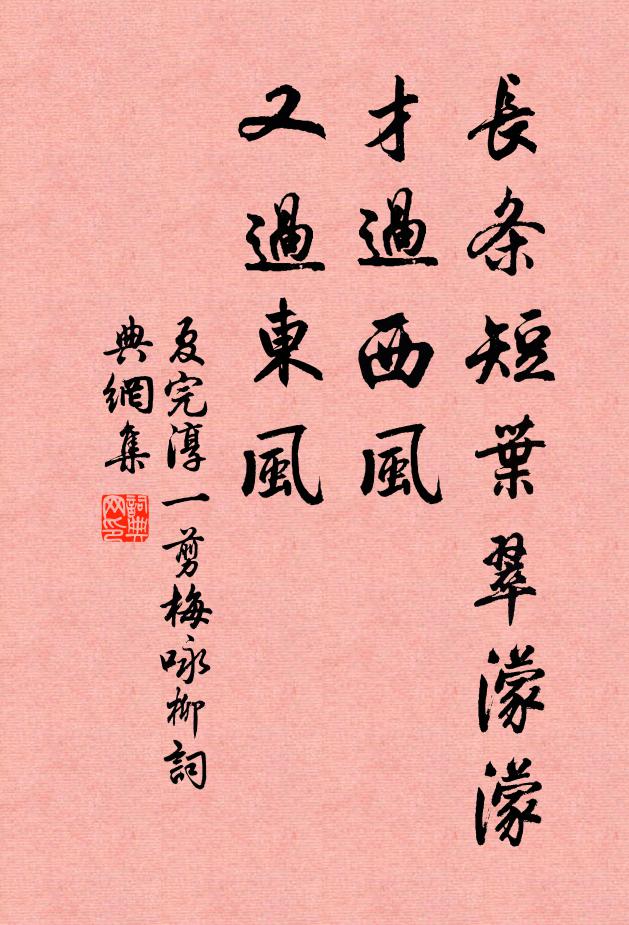 長条短葉翠濛濛
才過西風
又過東風
夏完淳一剪梅咏柳詞
典網集
詞典网印